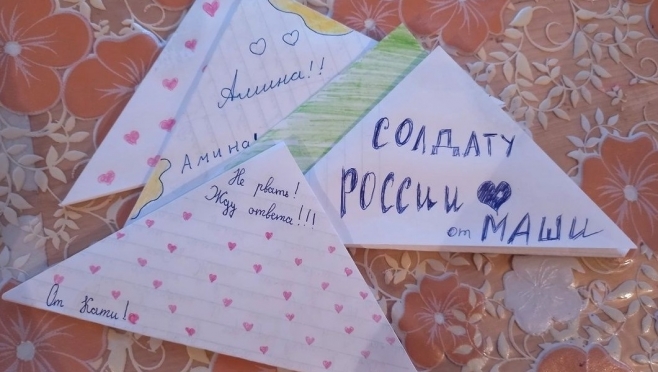 Амина!!
Амина!
Не рвать!
Жду ответа!!!
От Кати!
СОЛДАТУ
РОССИИ
от МАШИ